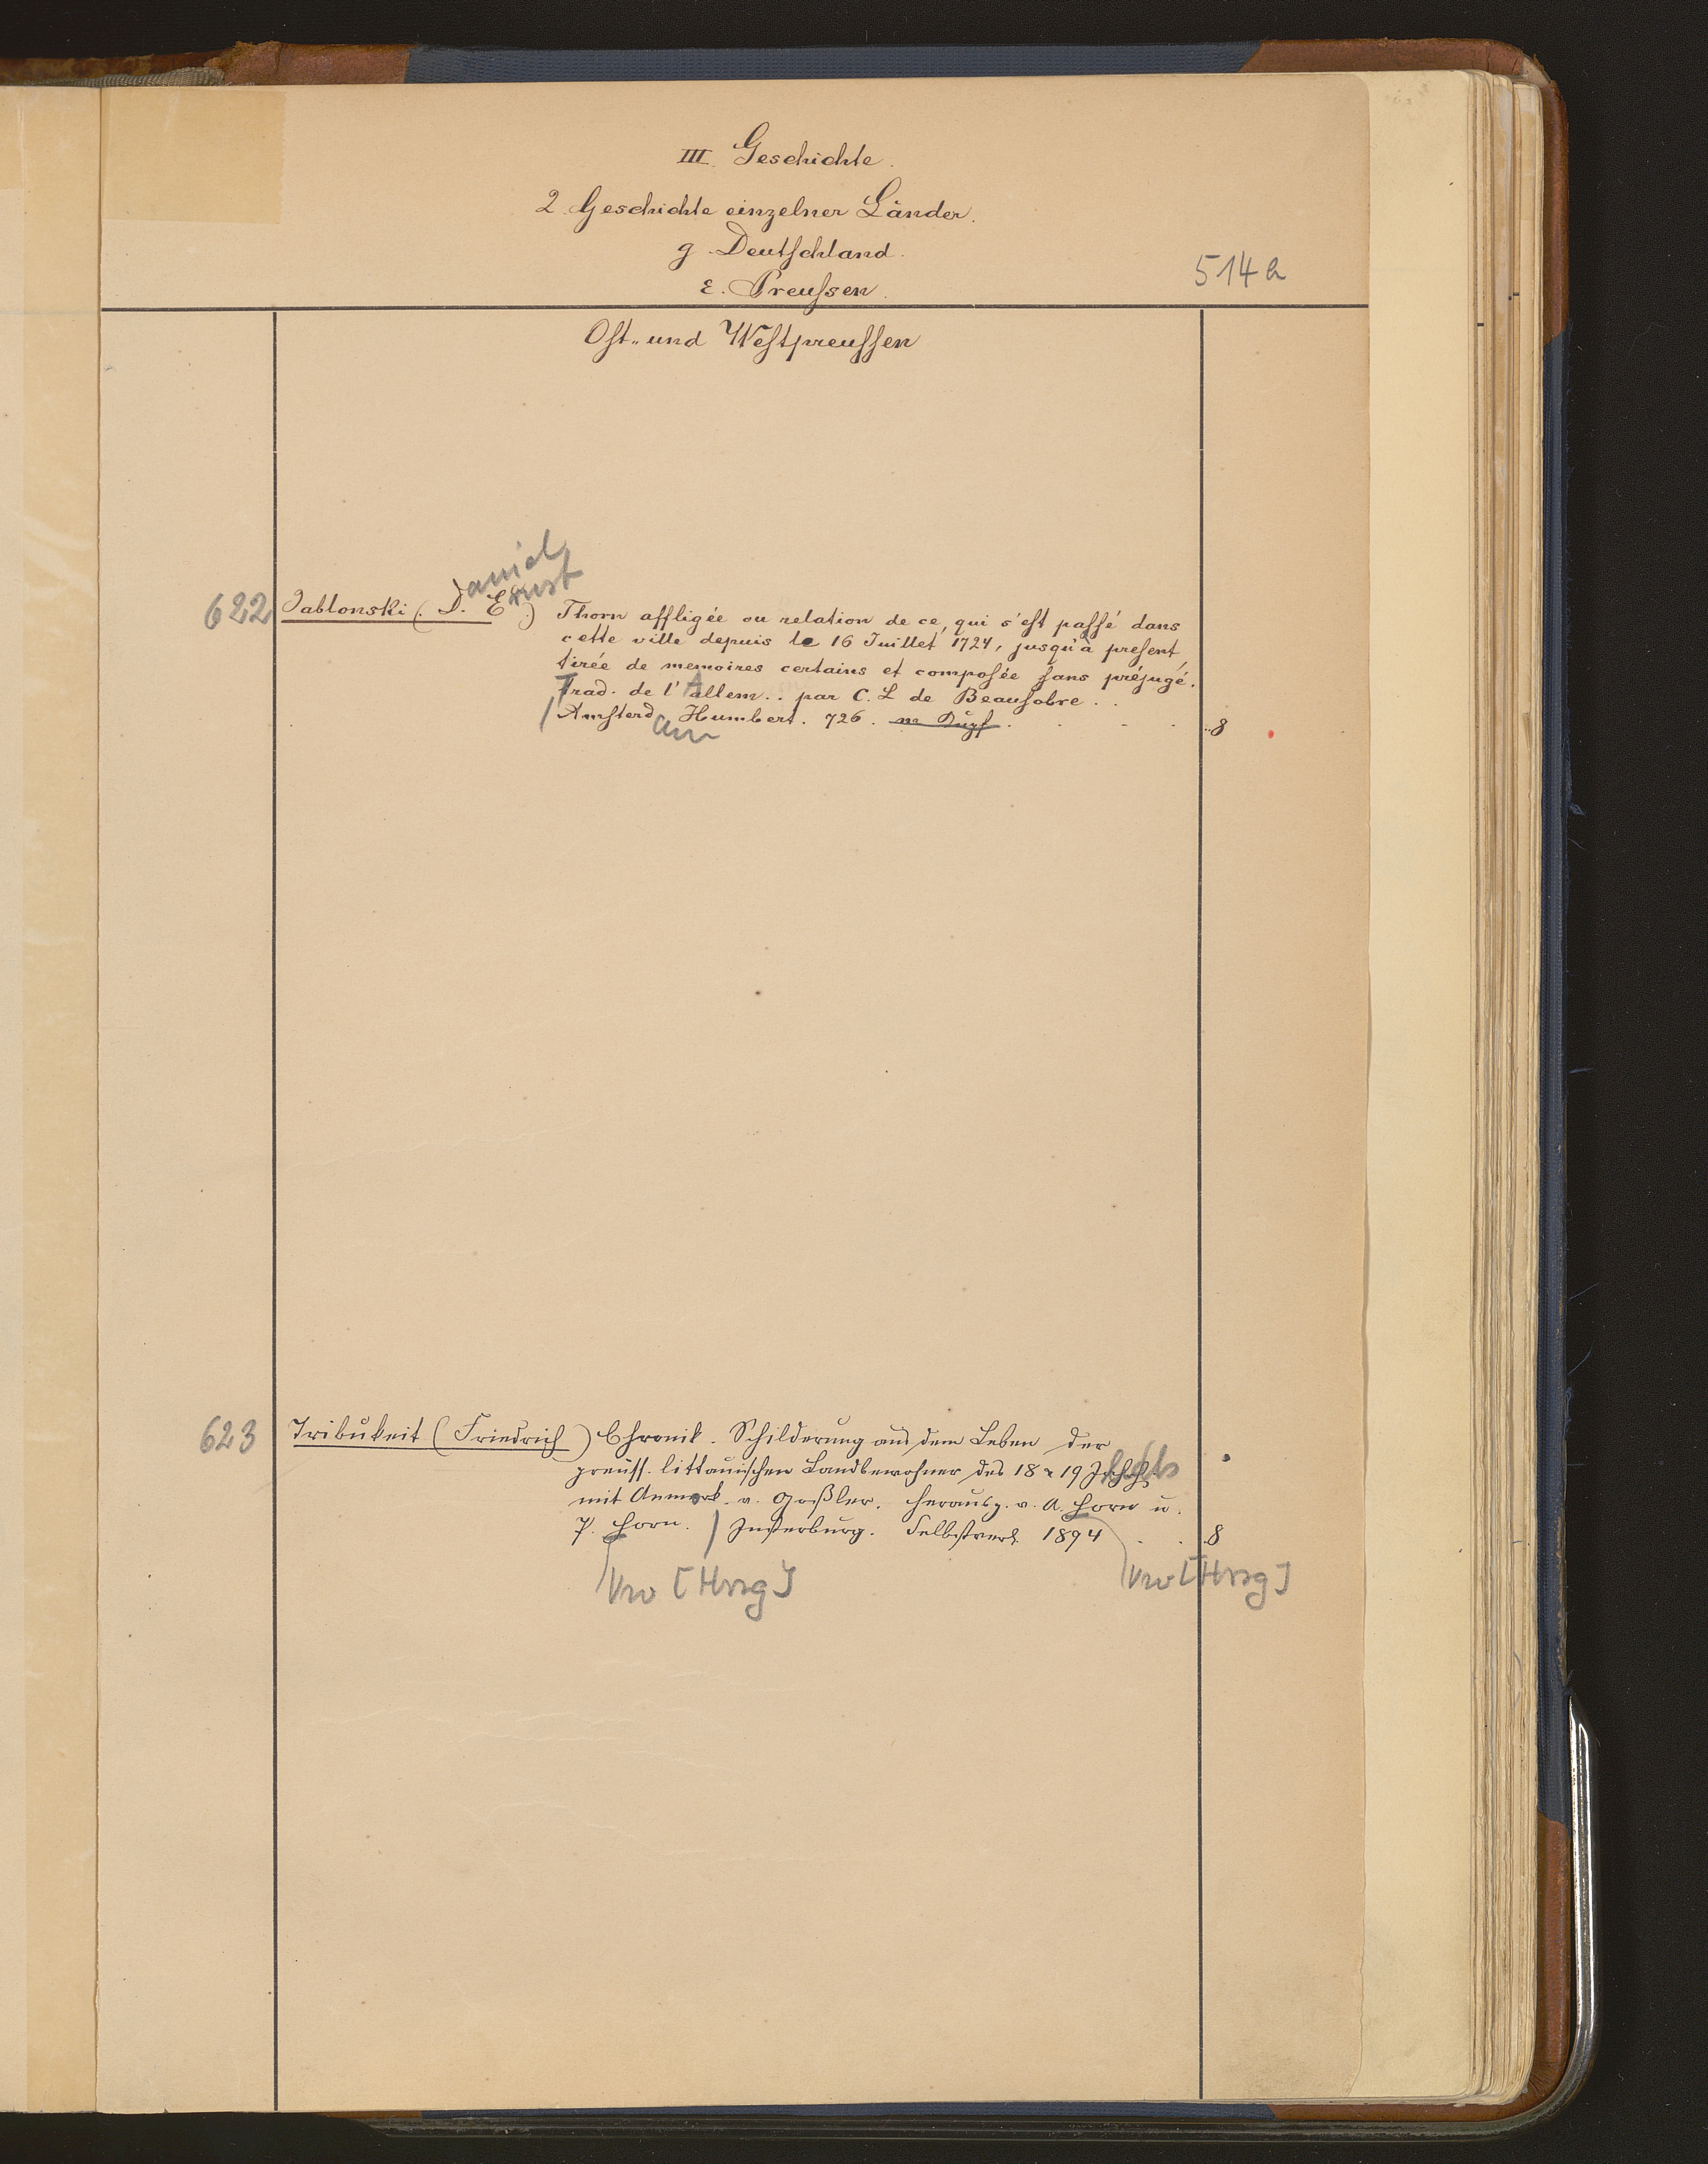 III. Geschichte.
2. Geschichte einzelner Länder.
g. Deutschland.
ε. Preussen.
514a
Ost- und Westpreussen
622 Jablonski (D.aniel E.rnst) Thorn affligée ou relation de ce, qui s'est passé dans
cette ville depuis le 16 Juillet 1724, jusqu'à present,
tirée de memoires certains et composée sans préjugé.
Trad. de l'Allem.. par C. L de Beausobre . .
/ Amsterdam Humbert. 726. m Kupf. . . . 8
623 Tribukeit (Friedrich) Chronik. Schilderung aus dem Leben der
preuss. littauischen Landbewohner des 18 & 19 Jhdts
mit Anmerk. v. Goßler. Herausg. v. A. Horn u.
P. Horn. / Insterburg. Selbstverl. 1894 . . 8
Vw [Hrsg] Vw [Hrsg]